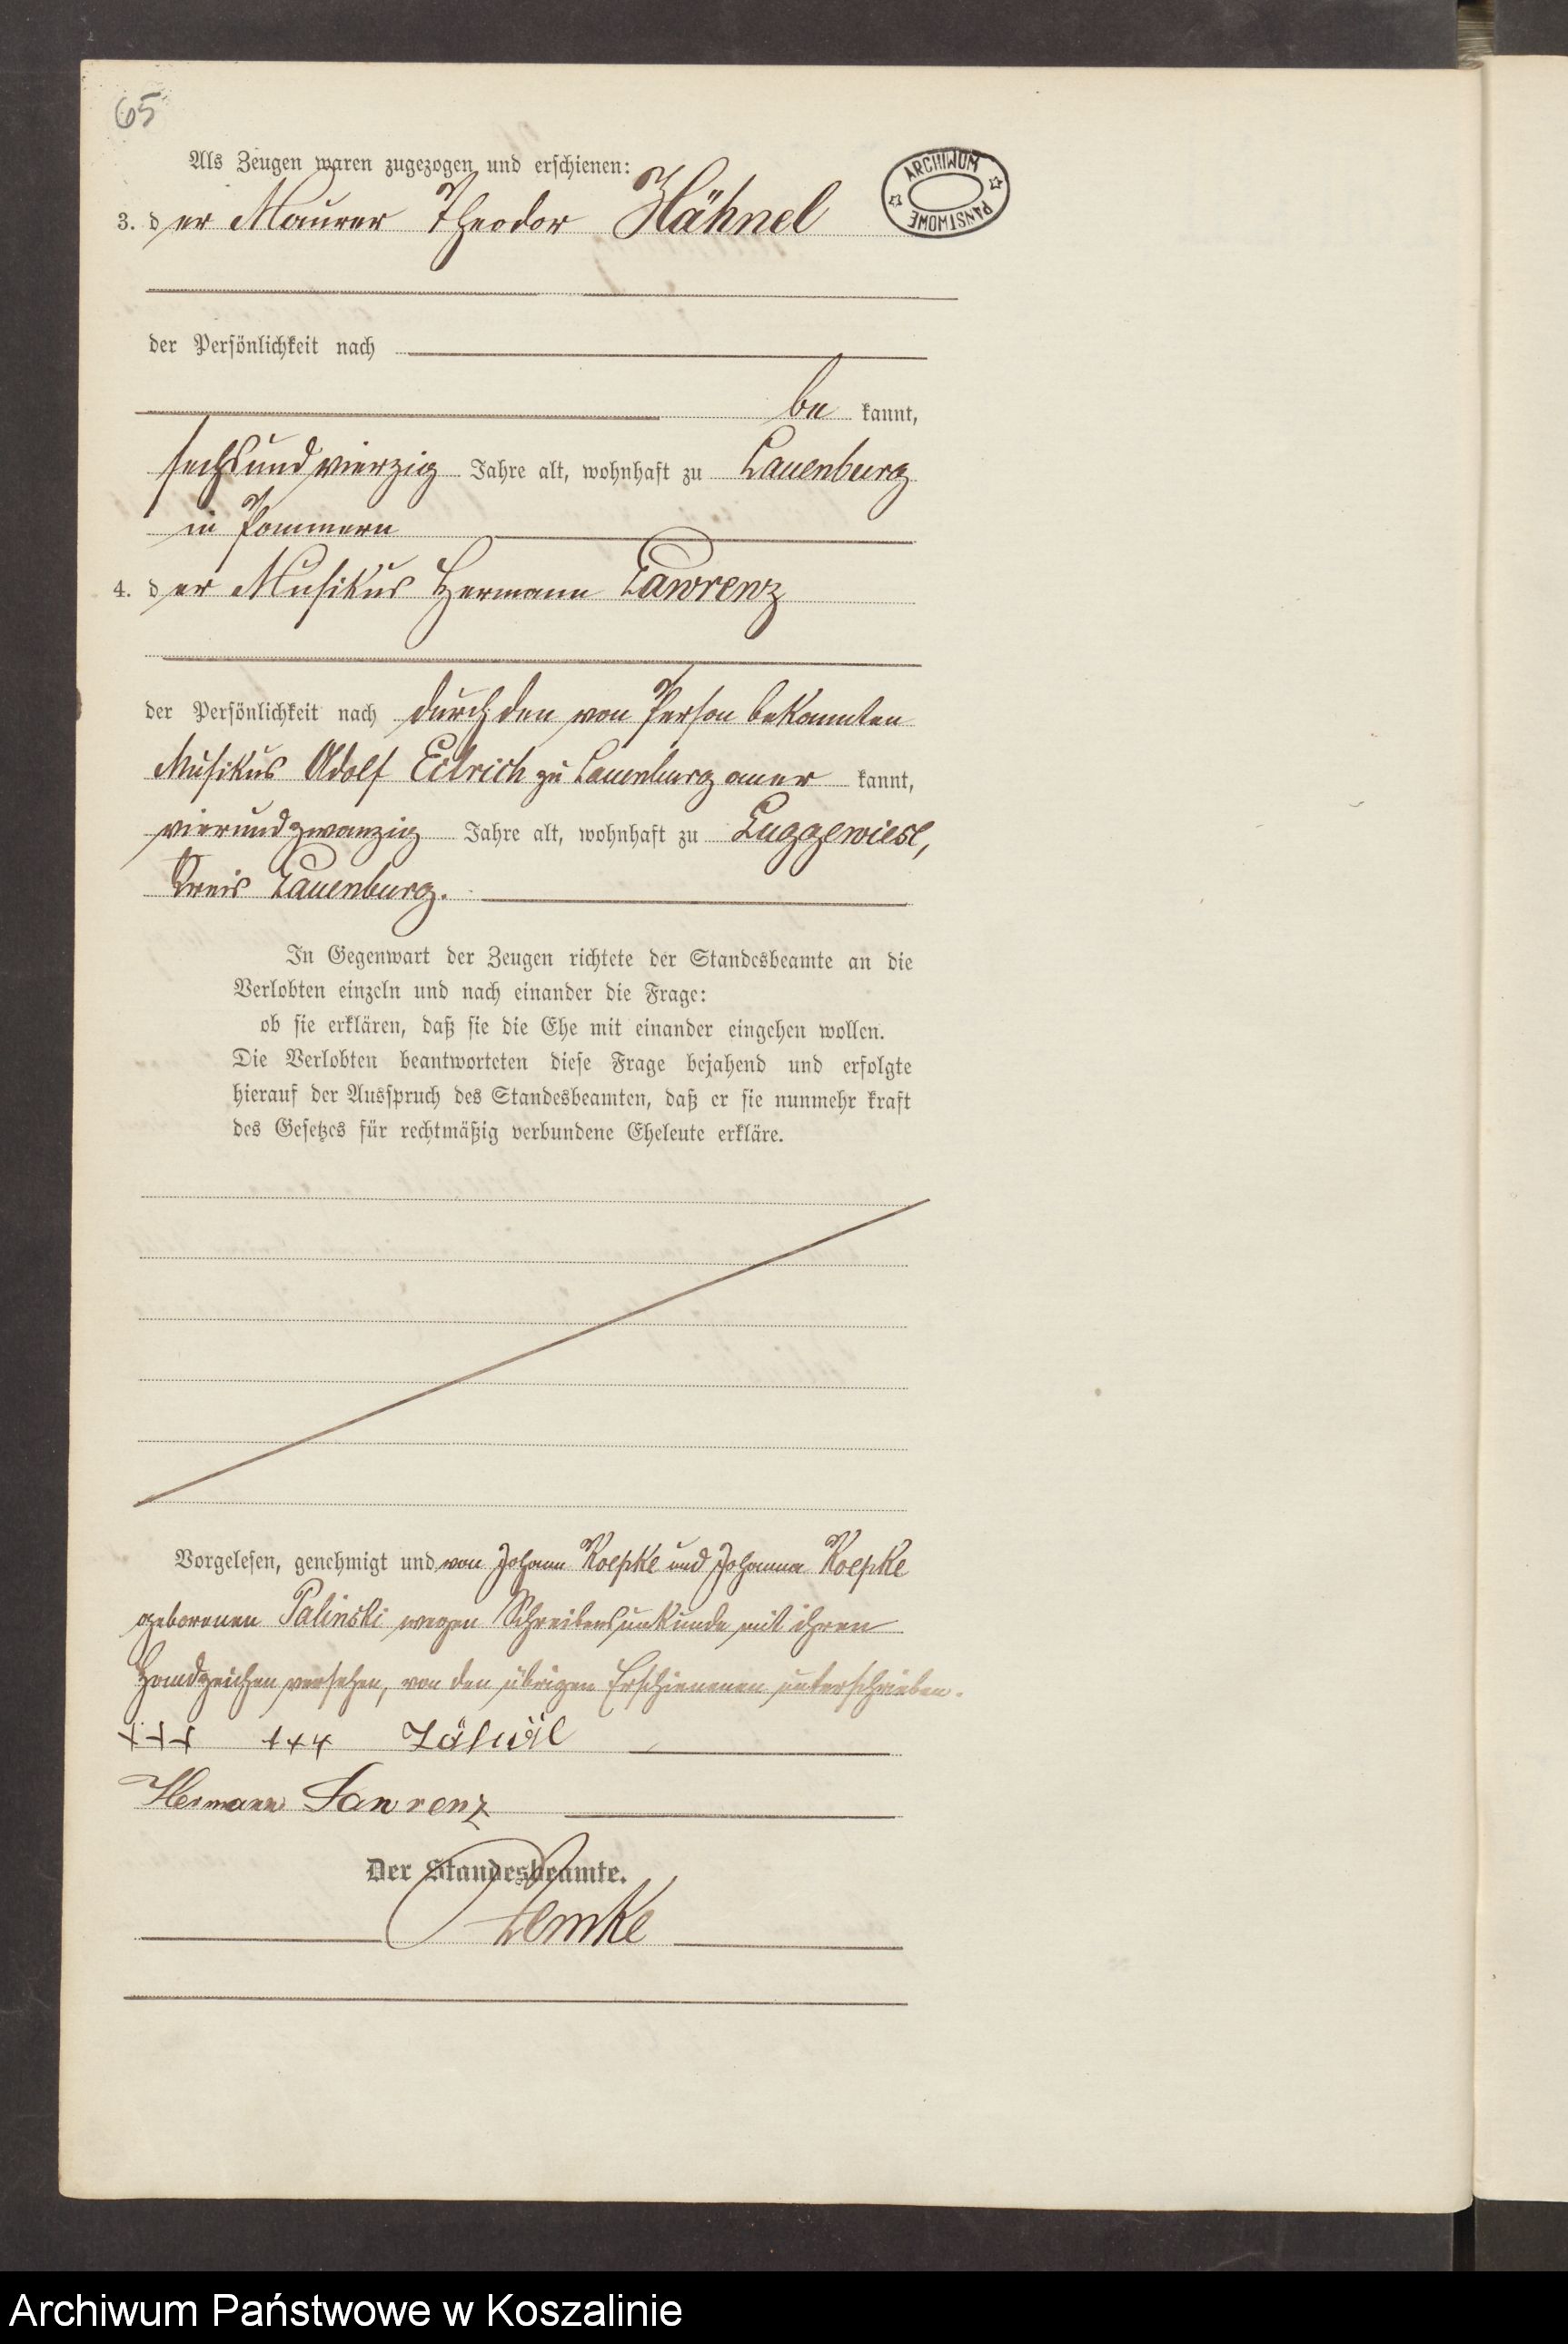 65
Als Zeugen waren zugezogen und erschienen:
ARCHIWUM PAŃSTWOWE
3. der Maurer Theodor Hähnel
der Persönlichkeit nach
be kannt,
sechsundvierzig Jahre alt, wohnhaft zu Lauenburg
in Pommern
4. der Musikus Hermann Lawrenz
der Persönlichkeit nach durch den von Person bekannten
Musikus Adolf Eilrich zu Lauenburg aner kannt,
vierundzwanzig Jahre alt, wohnhaft zu Luggewiese,
Kreis Lauenburg.
In Gegenwart der Zeugen richtete der Standesbeamte an die
Verlobten einzeln und nach einander die Frage:
ob sie erklären, daß sie die Ehe mit einander eingehen wollen.
Die Verlobten beantworteten diese Frage bejahend und erfolgte
hierauf der Ausspruch des Standesbeamten, daß er sie nunmehr kraft
des Gesetzes für rechtmäßig verbundene Eheleute erkläre.
Vorgelesen, genehmigt und von Johann Koepke und Johanna Koepke
geborenen Palinski wegen Schreibensunkunde mit ihren
Handzeichen versehen, von den übrigen Erschienenen unterschrieben.
+++ +++
Hermann Lawrenz
Der Standesbeamte.
Lemke
Archiwum Państwowe w Koszalinie